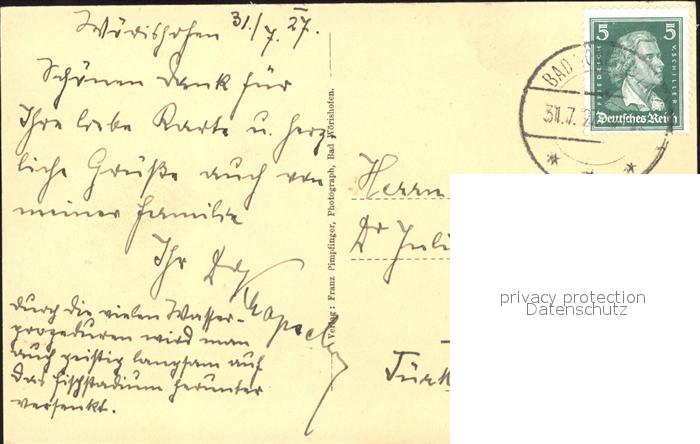 Wörishofen 31./7. 27.
Schönen Dank für
Ihre liebe Karte u. herz-
liche Grüße auch von
meiner Familie
Ihr
durch die vielen Wasser-
prozeduren wird man
auch geistig langsam auf
das Fischstadium herunter
versenkt.
Verlag: Franz Pimpfinger, Photograph, Bad Wörishofen.
5 5
FRIEDRICH V. SCHILLER
Deutsches Reich
BAD
31.7.2
Herrn
Dr Juli
Türk
privacy protection
Datenschutz